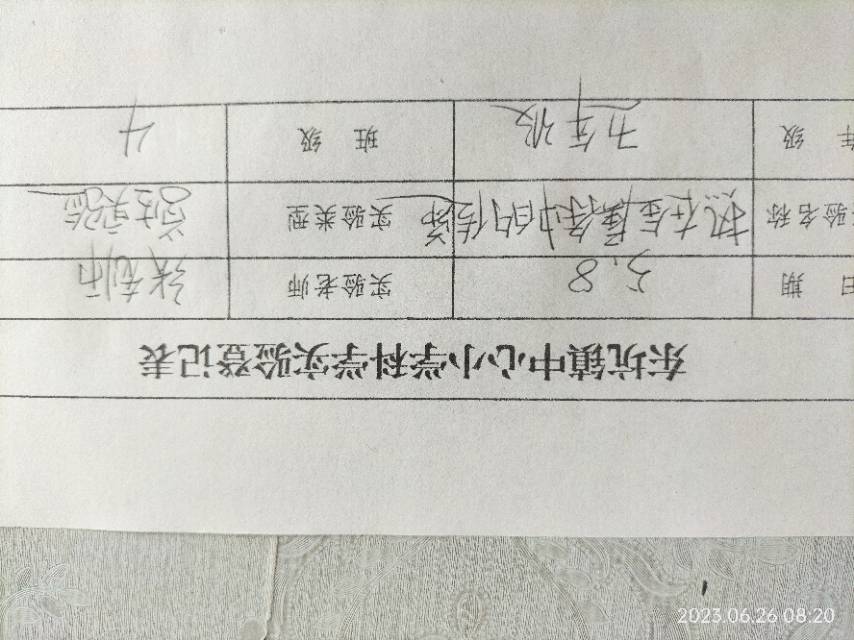 东坑镇中心小学科学实验登记表
日 期 5.8 实验老师
验名称 热在金属条中的传递 实验类型 学生实验
年 级 五年级 班 级 4
2023.06.26 08:20